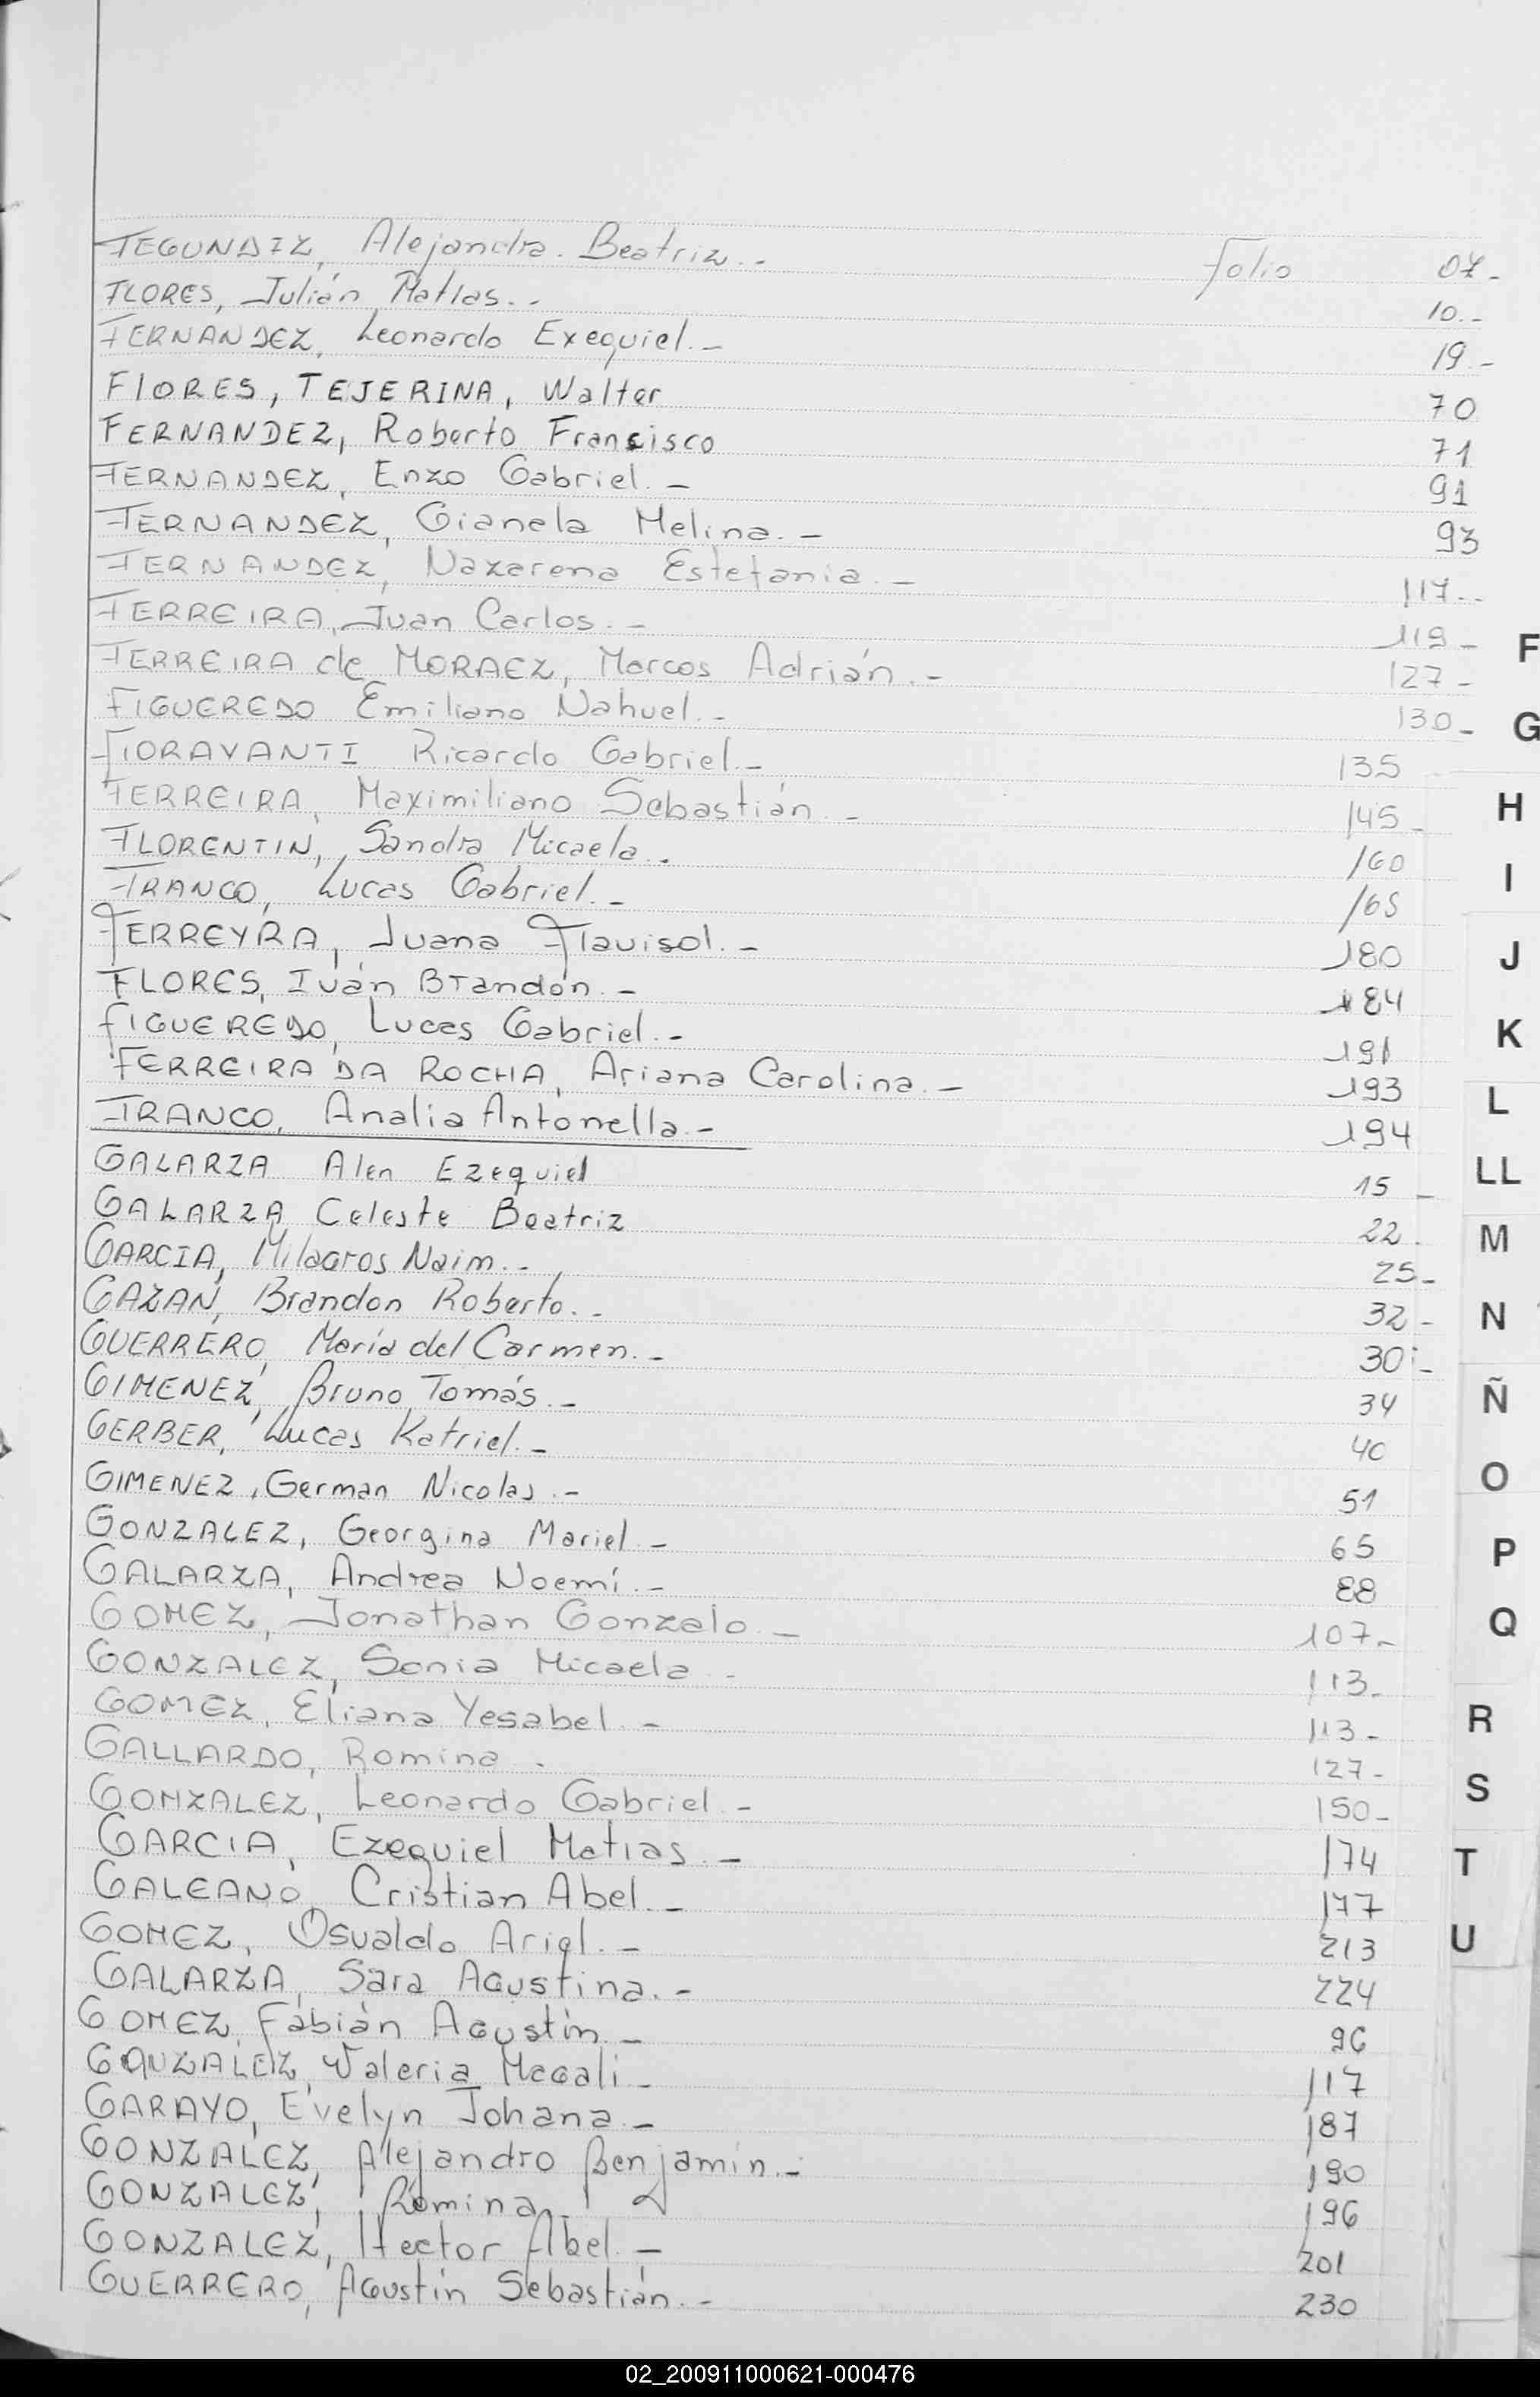 FEGUNDIZ, Alejandra. Beatriz.- Folio 07-
FLORES, Julián Matías.- 10.-
FERNANDEZ, Leonardo Exequiel.- 19.-
FlORES, TEJERINA, Walter 70
FERNANDEZ, Roberto Francisco 71
FERNANDEZ, Enzo Gabriel.- 91
FERNANDEZ, Gianela Melina.- 93
FERNANDEZ, Nazarena Estefania.- 117.-
FERREIRA, Juan Carlos.- 119-
FERREIRA de MORAEZ, Marcos Adrián.- 127-
FIGUEREDO Emiliano Nahuel.- 130-
FIORAVANTI Ricardo Gabriel.- 135
FERREIRA, Maximiliano Sebastián.- 145-
FLORENTIN, Sandra Micaela.. 160
FRANCO, Lucas Gabriel.- 165
FERREYRA, Juana Flavisol.- 180
FLORES, Iván Brandón.- 184
FIGUEREDO, Lucas Gabriel.- 191
FERREIRA DA ROCHA, Ariana Carolina.- 193
FRANCO, Analia Antonella.- 194
GALARZA Alen Ezequiel 15-
GALARZA, Celeste Beatriz 22.
GARCIA, Milagros Naim.- 25-
GAZAN, Brandon Roberto.- 32-
GUERRERO, María del Carmen.- 30-
GIMENEZ, Bruno Tomás.- 34
GERBER, Lucas Katriel.- 40
GIMENEZ, German Nicolas.- 51
GONZALEZ, Georgina Mariel.- 65
GALARZA, Andrea Noemí.- 88
GOMEZ, Jonathan Gonzalo.- 107-
GONZALEZ, Sonia Micaela.- 113-
GOMEZ, Eliana Yesabel.- 113-
GALLARDO, Romina. 127-
GONZALEZ, Leonardo Gabriel.- 150-
GARCIA, Ezequiel Matias.- 174
GALEANO, Cristian Abel.- 177
GOMEZ, Osvaldo Ariel.- 213
GALARZA, Sara Agustina.- 224
GOMEZ, Fabián Agustín.- 96
GONZALEZ, Valeria Magali- 117
GARAYO, Evelyn Johana.- 187
GONZALEZ, Alejandro Benjamin.- 190
GONZALEZ, Romina.- 196
GONZALEZ, Hector Abel.- 201
GUERRERO, Agustin Sebastián.- 230
F
G
H
I
J
K
L
LL
M
N
Ñ
O
P
Q
R
S
T
U
02_200911000621-000476